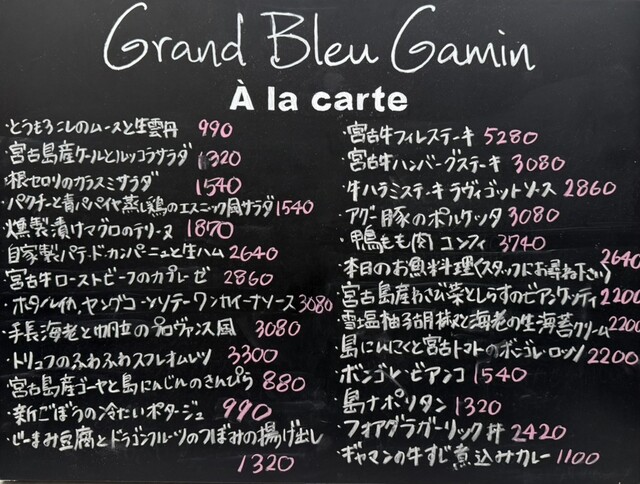 Grand Bleu Gamin
À la carte
・とうもろこしのムースと生雲丹 990
・宮古島産ケールとルッコラサラダ 1320
・根セロリのカラスミサラダ 1540
・パクチーと青パパイヤ蒸し鶏のエスニック風サラダ 1540
・燻製漬けマグロのテリーヌ 1870
・自家製パテ・ド・カンパーニュと生ハム 2640
・宮古牛ローストビーフのカプレーゼ 2860
・ホタルイカ、ヤングコーンソテー ワンカイーナソース 3080
・手長海老と帆立のプロヴァンス風 3080
・トリュフのふわふわスフレオムレツ 3300
・宮古島産ゴーヤと島にんじんのきんぴら 880
・新ごぼうの冷たいポタージュ 990
・じーまみ豆腐とドラゴンフルーツのつぼみの揚げ出し
1320
・宮古牛フィレステーキ 5280
・宮古牛ハンバーグステーキ 3080
・牛ハラミステーキ ラヴィゴットソース 2860
・アグー豚のポルケッタ 3080
・鴨もも肉 コンフィ 3740
・本日のお魚料理(スタッフにお尋ね下さい) 2640
・宮古島産わさび菜としらすのビアンケッティ 2200
・雪塩柚子胡椒と海老の生海苔クリーム 2200
・島にんにくと宮古トマトのボンゴレ・ロッソ 2200
・ボンゴレ・ビアンコ 1540
・島ナポリタン 1320
・フォアグラガーリック丼 2420
・ギャマンの牛すじ煮込みカレー 1100